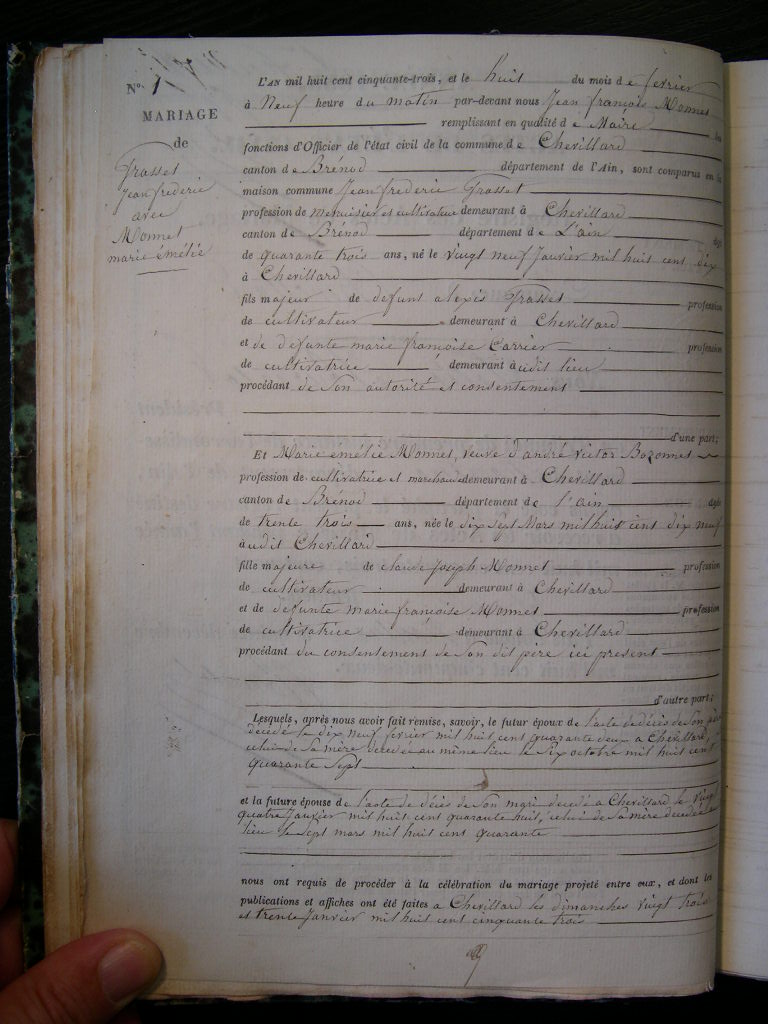 N° 1
MARIAGE
de
Grasset
Jean frederic
avec
Monnet
marie émélie
L'AN mil huit cent cinquante-trois, et le huit du mois de fevrier
à Neuf heure du matin par-devant nous Jean françois Monnet
remplissant en qualité de Maire les
fonctions d'Officier de l'état civil de la commune de Chevillard
canton de Brénod département de l'Ain, sont comparus en la
maison commune Jean frederic Grasset
profession de menuisier et cultivateur demeurant à Chevillard
canton de Brénod département de L'ain âgé
de quarante trois ans, né le vingt neuf Janvier mil huit cent dix
à Chevillard
fils majeur de defunt alexis Grasset profession
de cultivateur demeurant à Chevillard
et de defunte marie françoise Carrier profession
de cultivatrice demeurant audit lieu
procédant de son autorité et consentement
d'une part;
Et Marie émélie Monnet, veuve d'andré victor Bozonnet
profession de cultivatrice et marchande demeurant à Chevillard
canton de Brénod département de l'ain âgée
de trente trois ans, née le dix sept Mars mil huit cent dix neuf
audit Chevillard
fille majeure de claude Joseph Monnet profession
de cultivateur demeurant à Chevillard
et de defunte marie françoise Monnet profession
de cultivatrice demeurant à Chevillard
procédant du consentement de son dit père ici present
d'autre part;
Lesquels, après nous avoir fait remise, savoir, le futur époux de l'acte de décès de son père
décédé le dix neuf février mil huit cent quarante deux a Chevillard,
celui de sa mère décédée au même lieu le six octobre mil huit cent
quarante sept
et la future épouse de l'acte de décès de son mari décédé a Chevillard le vingt
quatre Janvier mil huit cent quarante huit, celui de sa mère décédée
lieu le sept mars mil huit cent quarante
nous ont requis de procéder à la célébration du mariage projeté entre eux, et dont les
publications et affiches ont été faites a Chevillard les dimanches vingt trois
et trente Janvier mil huit cent cinquante trois